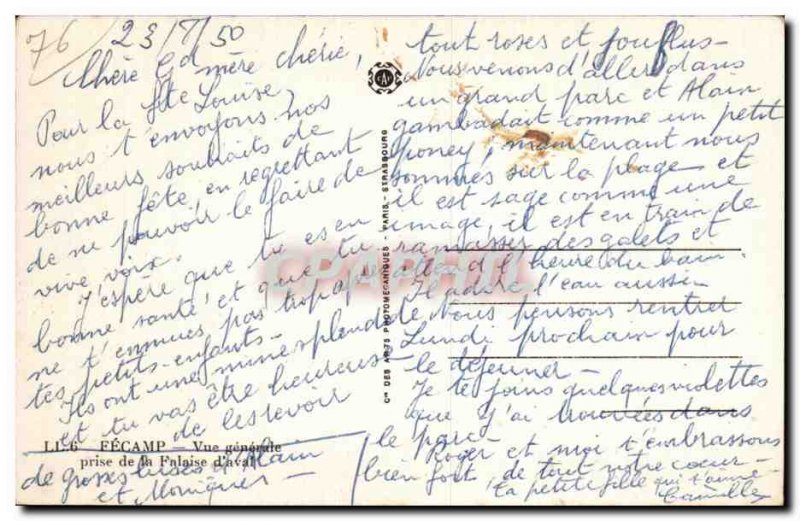 76
23/7/50
Chère Gd mère chérie,
Pour la fête Louise,
nous t'envoyons nos
meilleurs souhaits de
bonne fête, en regrettant
de ne pouvoir le faire de
vive voix.
J'espère que tu es en
bonne santé et que tu
ne t'ennuies pas trop après
tes petits-enfants-
Ils ont une mine splendide
et tu vas être heureuse
de les revoir
LL 6 FÉCAMP - Vue générale
prise de la Falaise d'aval
de grosses bises d'Alain
et Monique-
Cie DES ARTS PHOTOMECANIQUES - PARIS - STRASBOURG
CAP
tout roses et joufflus-
Nous venons d'aller dans
un grand parc et Alain
gambadait comme un petit
poney, maintenant nous
sommes sur la plage et
il est sage comme une
image, il est en train de
ramasser des galets et
attend l'heure du bain.
Il adore l'eau aussi-
Nous pensons rentrer
Lundi prochain pour
le déjeuner-
Je te joins quelques violettes
que j'ai trouvées dans
le parc-
Roger et moi t'embrassons
bien fort, de tout notre coeur-
Ta petite fille qui t'aime-
Camille